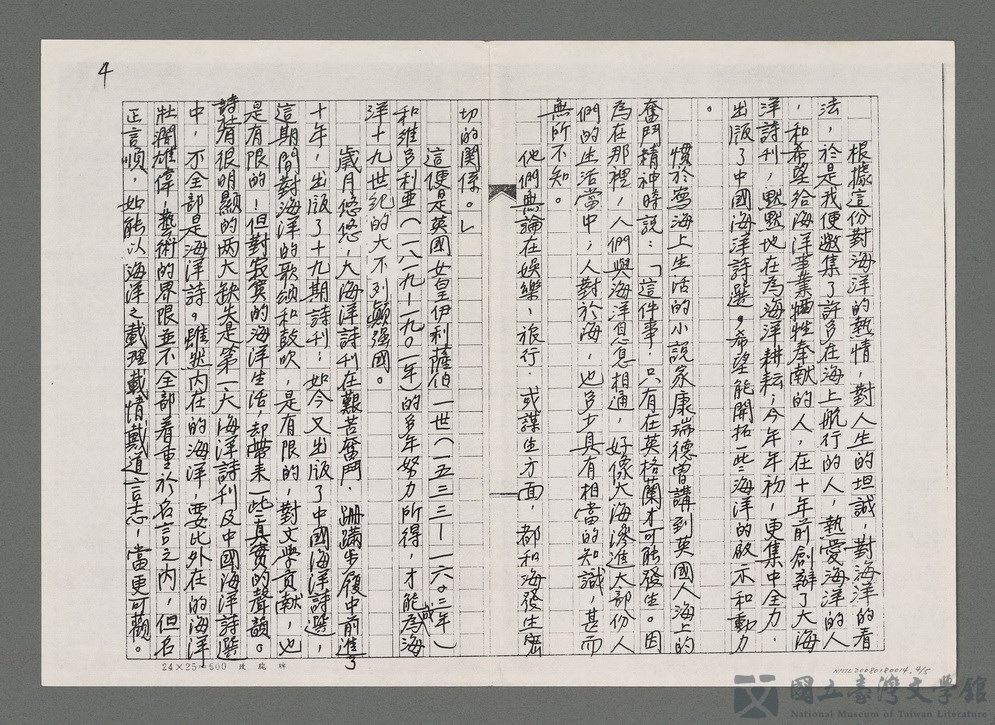 4
根據這份對海洋的熱情，對人生的坦誠，對海洋的看
法，於是我便邀集了許多在海上航行的人，熱愛海洋的人
，和希望給海洋事業犧牲奉献的人，在十年前創辦了大海
洋詩刊，默默地在為海洋耕耘；今年年初，更集中全力，
出版了中國海洋詩選，希望能開拓一些海洋的啟示和動力
。
慣於寫海上生活的小說家康瑞德曾講到英國人海上的
奮鬥精神時說：「這件事，只有在英格蘭才可能發生。因
為在那裡，人們與海洋息息相通，好像大海滲進大部份人
們的生活當中；人對於海，也多少具有相當的知識，甚而
無所不知。
他們無論在娛樂、旅行，或謀生方面，都和海發生密
切的關係。」
這便是英國女皇伊利薩伯一世（一五三三—一六〇三年）
和維多利亞（一八一九—一九〇一年）的多年努力所得，才能成為海
洋十九世紀的大不列顛強國。
歲月悠悠，大海洋詩刊在艱苦奮鬥，蹣跚步履中前進了
十年，出版了十九期詩刊；如今又出版了中國海洋詩選，
這期間對海洋的歌頌和鼓吹，是有限的，對文學貢献，也
是有限的！但對寂寞的海洋生活，却帶來一些真實的聲韻。
詩選有很明顯的两大缺失是第一大海洋詩刊及中國海洋詩選
中，不全部是海洋詩。雖然內在的海洋，要比外在的海洋
壯濶雄偉，藝術的界限並不全部着重於名言之內，但名
正言順，如能以海洋之載理載情載道言志，當更可觀。
24×25=600
NMTL20080180014 4/5
國立臺灣文學館
National Museum of Taiwan Literature